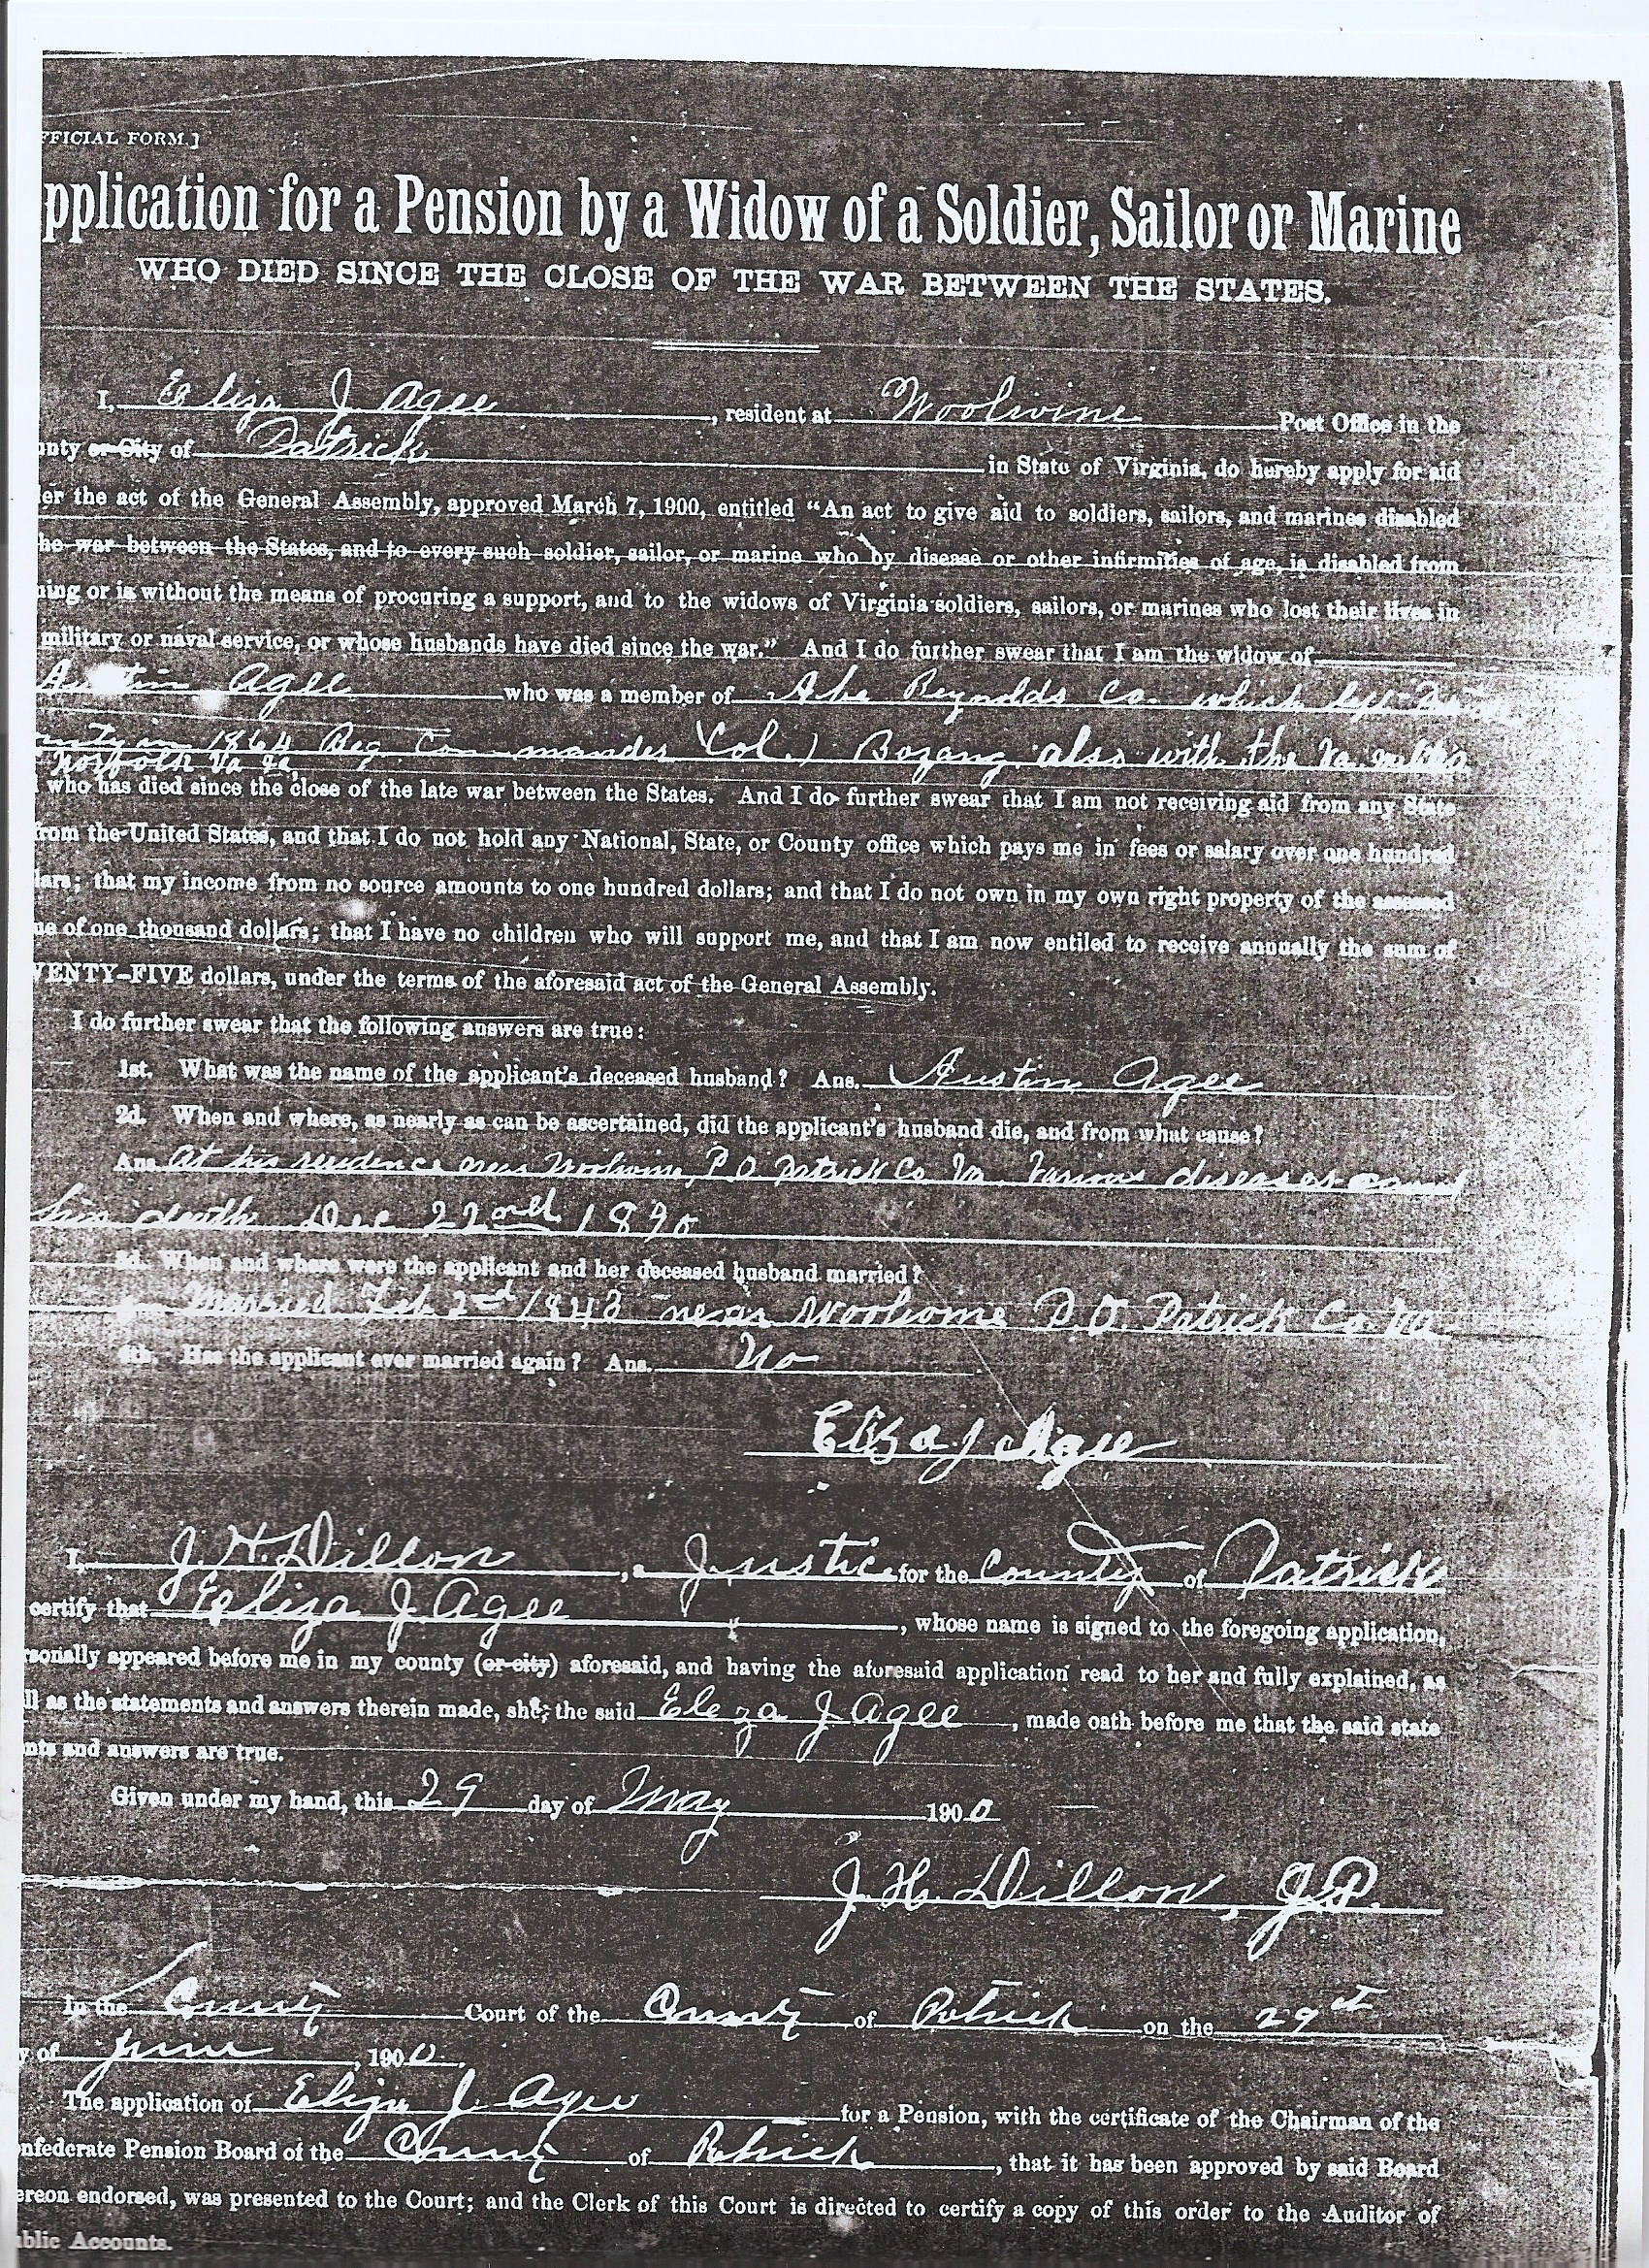 FFICIAL FORM.]
pplication for a Pension by a Widow of a Soldier, Sailor or Marine
WHO DIED SINCE THE CLOSE OF THE WAR BETWEEN THE STATES.
I, Eliza J Agee, resident at Woolwine Post Office in the
nty or City of Patrick in State of Virginia, do hereby apply for aid
er the act of the General Assembly, approved March 7, 1900, entitled “An act to give aid to soldiers, sailors, and marines disabled
he war between the States, and to every such soldier, sailor, or marine who by disease or other infirmities of age, is disabled from
ning or is without the means of procuring a support, and to the widows of Virginia soldiers, sailors, or marines who lost their lives in
military or naval service, or whose husbands have died since the war.” And I do further swear that I am the widow of
Austin Agee who was a member of Abe Reynolds Co. which left
in 1864 Reg. Commander (Col.) Bozang also with the Va.
Norfolk Va
who has died since the close of the late war between the States. And I do further swear that I am not receiving aid from any State
from the United States, and that I do not hold any National, State, or County office which pays me in fees or salary over one hundred
lars; that my income from no source amounts to one hundred dollars; and that I do not own in my own right property of the assessed
ue of one thousand dollars; that I have no children who will support me, and that I am now entiled to receive annually the sum of
VENTY-FIVE dollars, under the terms of the aforesaid act of the General Assembly.
I do further swear that the following answers are true:
1st. What was the name of the applicant's deceased husband? Ans. Austin Agee
2d. When and where, as nearly as can be ascertained, did the applicant's husband die, and from what cause?
Ans. At his residence near Woolwine P.O. Patrick Co Va. Various diseases caused
his death Dec 22nd 1890
3d. When and where were the applicant and her deceased husband married?
Married Feb 2nd 1843 near Woolwine P.O. Patrick Co. Va.
4th. Has the applicant ever married again? Ans. No
Eliza J Agee
I, J. H. Dillon, a Justice for the County of Patrick
certify that Eliza J. Agee, whose name is signed to the foregoing application,
rsonally appeared before me in my county (or city) aforesaid, and having the aforesaid application read to her and fully explained, as
ll as the statements and answers therein made, she, the said Eleza J Agee, made oath before me that the said state
nts and answers are true.
Given under my hand, this 29 day of May 1900
J. H. Dillon, J.P.
In the County Court of the County of Patrick on the 29th
y of June, 1900.
The application of Eliza J. Agee for a Pension, with the certificate of the Chairman of the
nfederate Pension Board of the County of Patrick, that it has been approved by said Board
ereon endorsed, was presented to the Court; and the Clerk of this Court is directed to certify a copy of this order to the Auditor of
ublic Accounts.